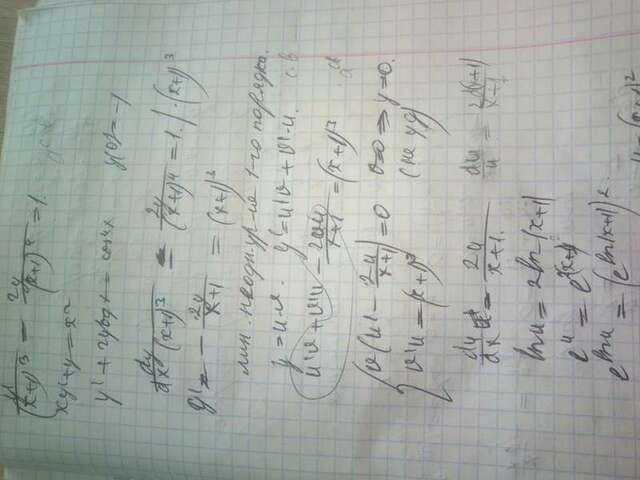 y'/(x+1)³ − 2y/(x+1)⁴ = 1.
xy'+y = x²
y' + 2y tg x = cos⁴x y(0) = −1
dy/dx (x+1)³ = 2y/(x+1)⁴ = 1. | ·(x+1)³
y' = − 2y/x+1 = (x+1)³
лин. неодн. ур-ие 1-го порядка.
y = u·v. y' = u'v + v'·u.
u'v + v'u − 2vu/x+1 = (x+1)³
{ v(u' − 2u/x+1) = 0 v=0 ⇒ y=0.
v'u = (x+1)³ (не уд)
du/dx = 2u/x+1. du/u = 2d(x+1)/x+1
ln u = 2ln|x+1|
e^u = e^2(x+1)
e^ln u = (e^ln|x+1|)²